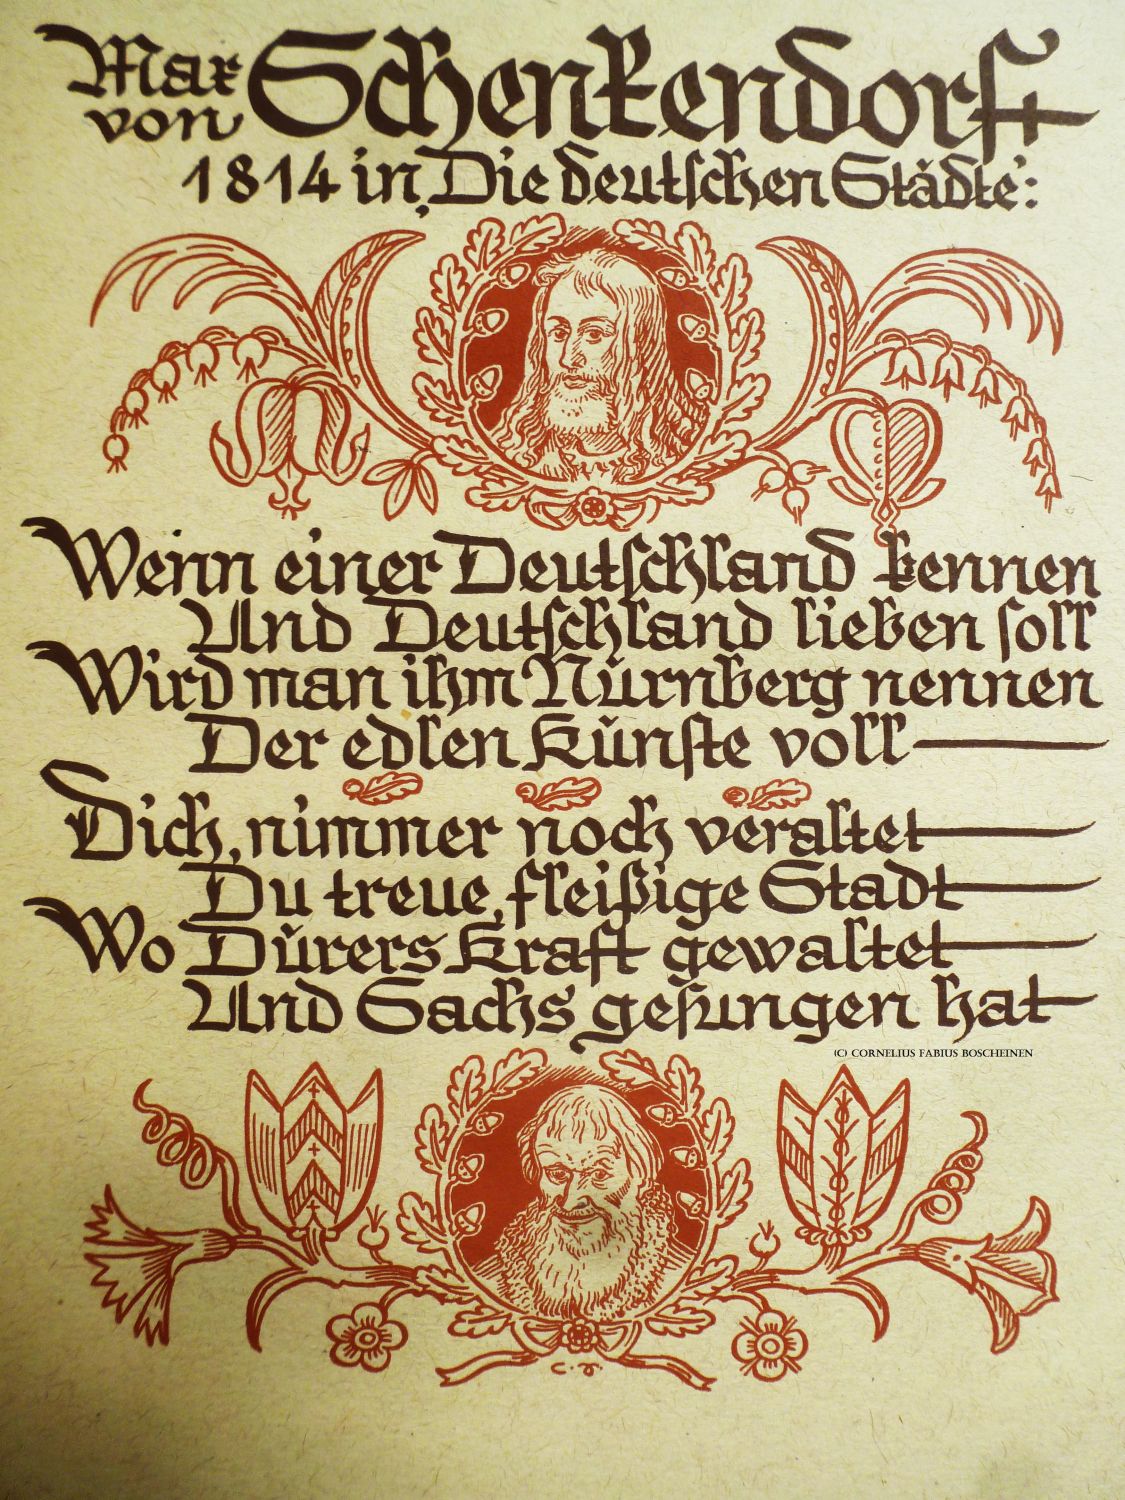 Max
von Schenkendorf
1814 in „Die deutschen Städte‘:
Wenn einer Deutschland kennen
Und Deutschland lieben soll
Wird man ihm Nürnberg nennen
Der edlen Künste voll
Dich, nimmer noch veraltet
Du treue, fleißige Stadt
Wo Dürers Kraft gewaltet
Und Sachs gesungen hat
(C) CORNELIUS FABIUS BOSCHEINEN